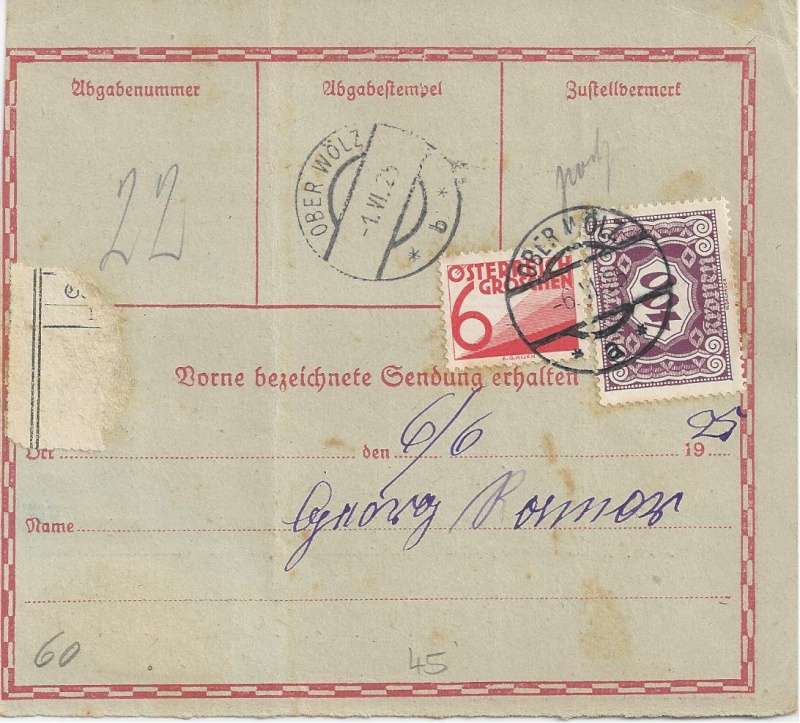 Abgabenummer
Abgabestempel
Zustellvermerk
22
OBER WÖLZ
-1.VI.25
* b *
ÖSTERREICH
GROSCHEN
6
OBER WÖLZ
-6.VI
* b *
400
Kronen
Vorne bezeichnete Sendung erhalten
Ort den 6/6 19 25
Name Georg
60
45